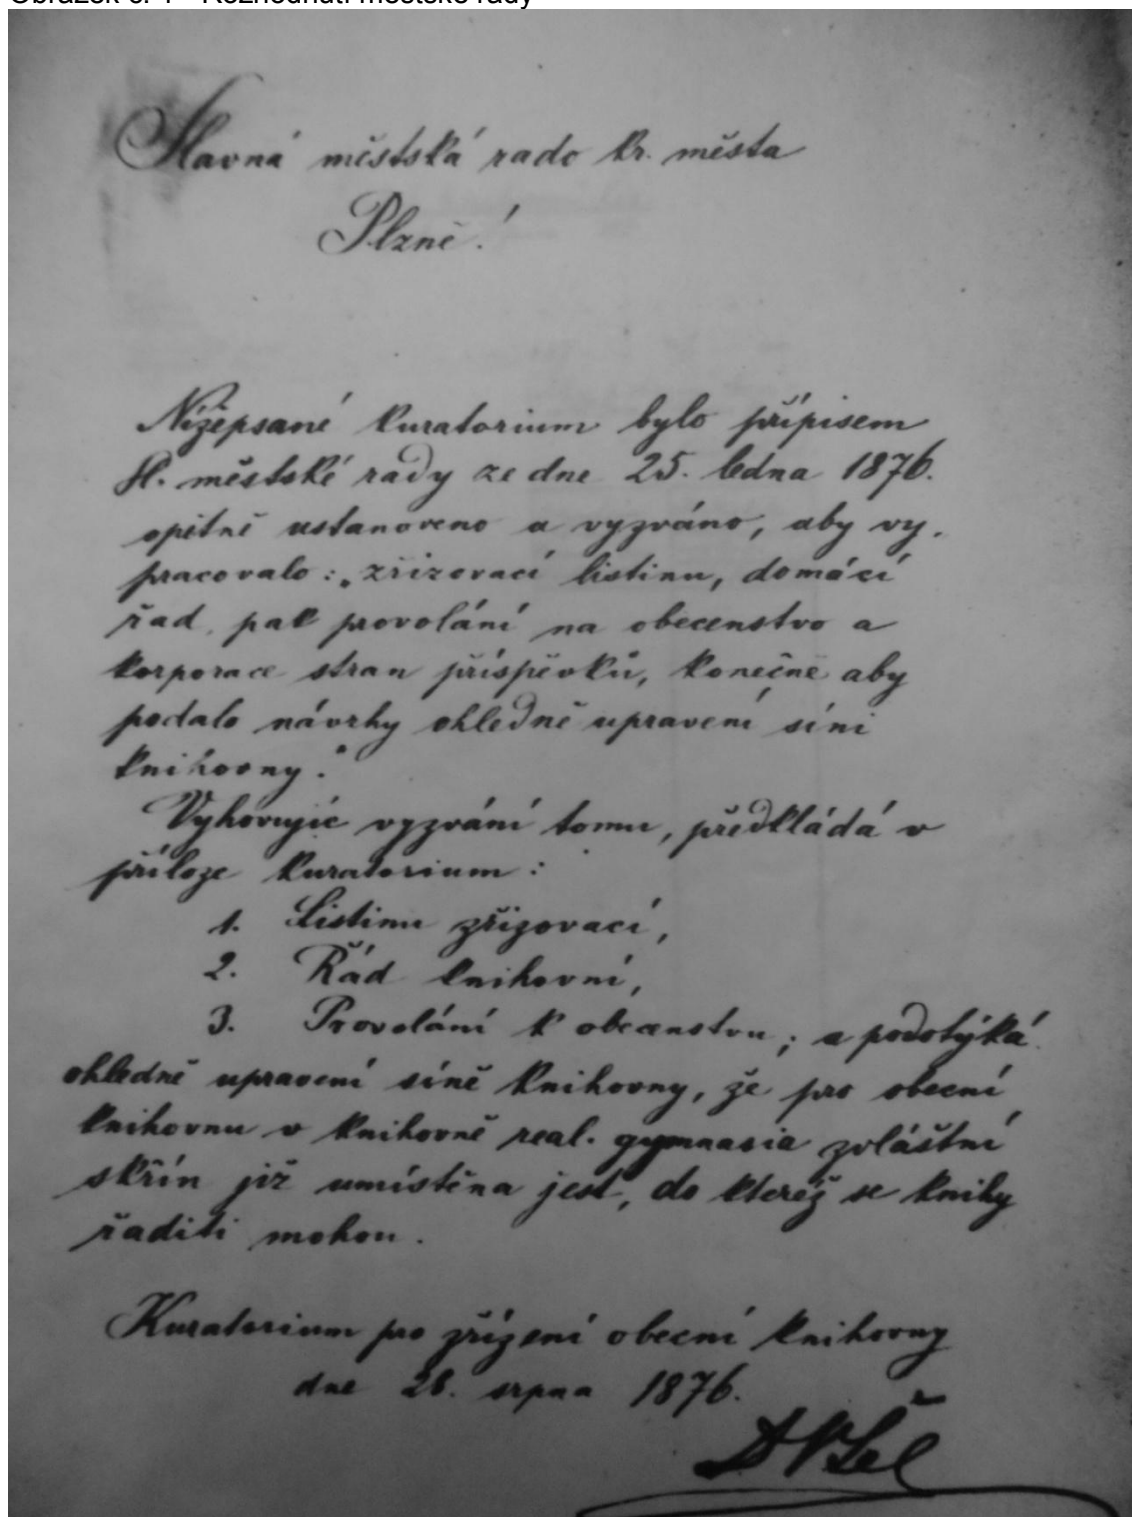 Slavná městská rado kr. města
Plzně!
Nížepsané kuratorium bylo přípisem
sl. městské rady ze dne 25. ledna 1876.
opětně ustanoveno a vyzváno, aby vy-
pracovalo: „zřizovací listinu, domácí
řad, pak provolání na obecenstvo a
korporace stran příspěvků, konečně aby
podalo návrhy ohledně upravení síni
knihovny."
Vyhovujíc vyzvání tomu, předkládá v
příloze kuratorium:
1. Listinu zřizovací,
2. Řád knihovní,
3. Provolání k obecenstvu; a podotýká
ohledně upravení síně knihovny, že pro obecní
knihovnu v knihovně real. gymnasia zvláštní
skřín již umístěna jest, do kteréž se knihy
řaditi mohou.
Kuratorium pro zřízení obecní knihovny
dne 26. srpna 1876.